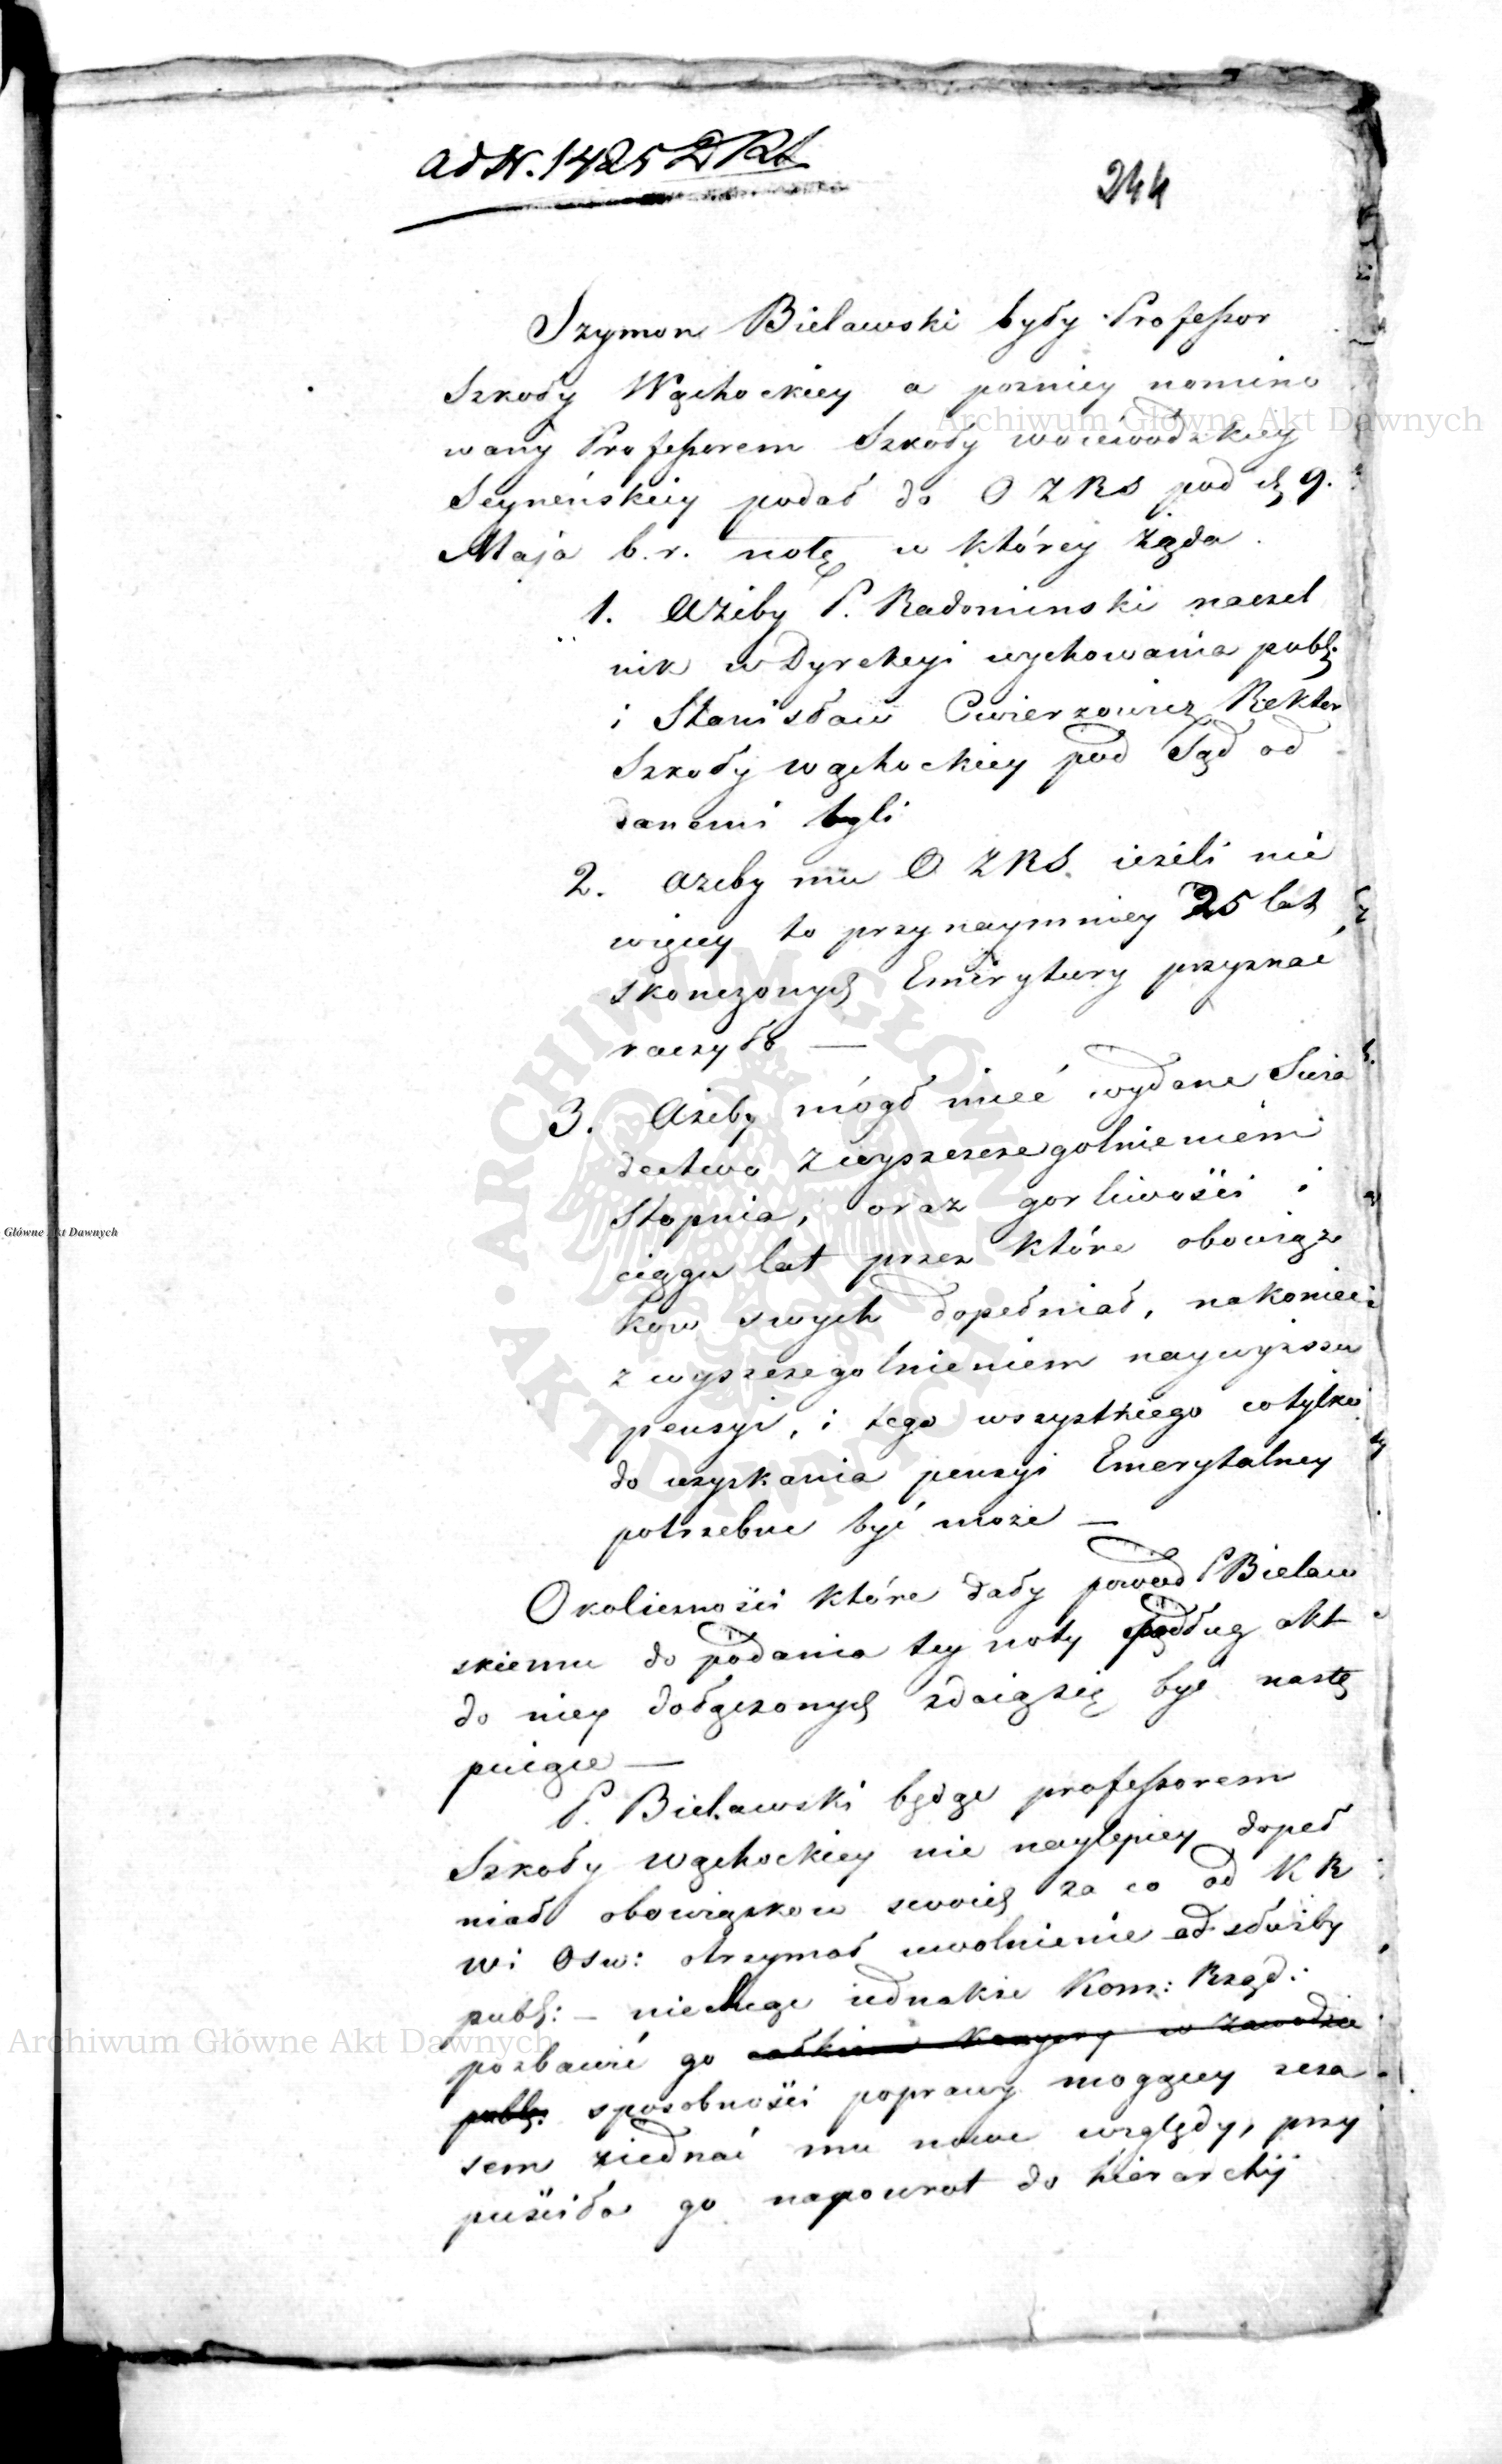 ad N. 1425 D Rl
244
Szymon Bielawski były Professor
Szkoły Wąchockiey a pozniey nomino
wany Professorem Szkoły woiewodzkiey
Seyneńskiey podał do O Z R S pod d. 9.
Maja b.r. notę w którey żąda.
1. Ażeby P. Radominski naczel
nik w Dyrekcyi wychowania publ:
i Stanisław Cwierzowicz Rektor
Szkoły wąchockiey pod Sąd od
danemi byli
2. ażeby mu O Z R S. ieżeli nie
więcey to przynaymniey 25 lat
skonczonych Emerytury przyznać
raczyła —
3. Ażeby mógł mieć wydane Swia
dectwo z wyszczezegolnieniem
Stopnia, oraz gorliwości i
ciągu lat przez które obowiąz
kow swych dopełniał, nakoniec
z wyszczegolnieniem naywyższey
pensyi, i tego wszystkiego co tylko
do uzyskania pensyi Emerytalney
potrzebne być może —
Okoliczności które dały powod P Bielaw
skiemu do podania tey noty podług akt
do niey dołączonych zdaią się być nastę
puiące —
P. Bielawski będąc professorem
Szkoły wąchockiey nie naylepiey dopeł
niał obowiązkow swoich za co od K R
W i Osw: otrzymał uwolnienie od służby
publ: — niechcąc iednakże Kom: Rząd:
pozbawić go całkiem Karyery w zawodzie
publ: sposobności poprawy mogącey cza
sem ziednać mu nowe względy, przy
puściła go napowrot do hierarchij
Archiwum Główne Akt Dawnych
ARCHIWUM GŁÓWNE AKT DAWNYCH
Główne Akt Dawnych
Archiwum Główne Akt Dawnych